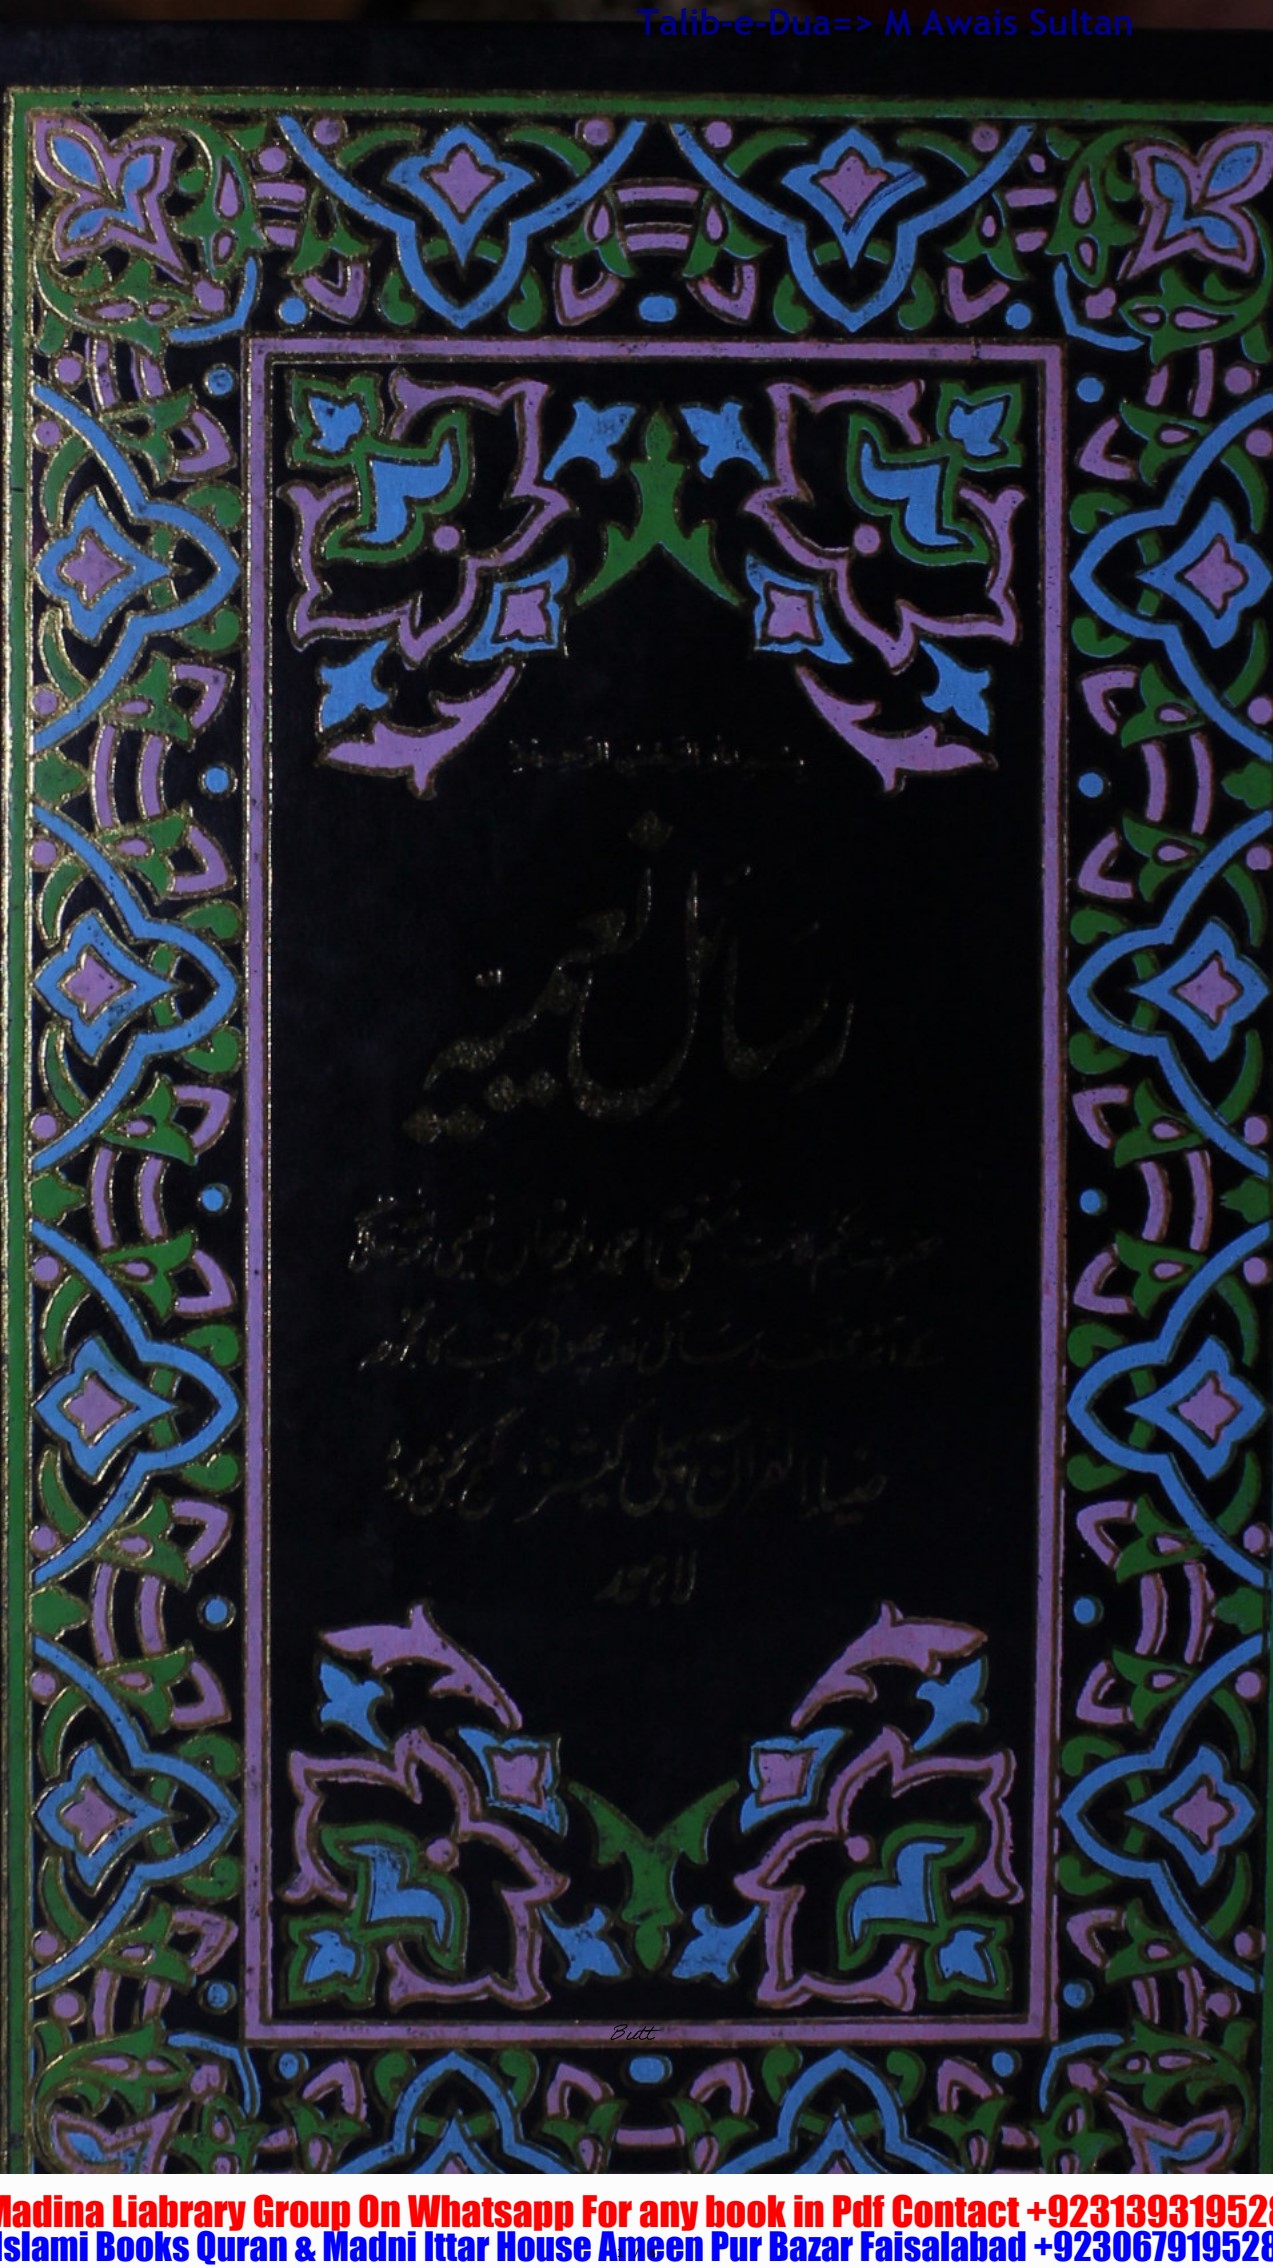 Talib-e-Dua=> M Awais Sultan
بسم الله الرحمن الرحيم
رسائل نعیمیہ
حضرت حکیم الامت مفتی احمد یار خان نعیمی
کے آٹھ مختلف رسائل اور چھوٹی کتب کا مجموعہ
ضیاء القرآن پبلی کیشنز، گنج بخش روڈ
لاہور
Butt
Madina Liabrary Group On Whatsapp For any book in Pdf Contact +923139319528
Islami Books Quran & Madni Ittar House Ameen Pur Bazar Faisalabad +923067919528